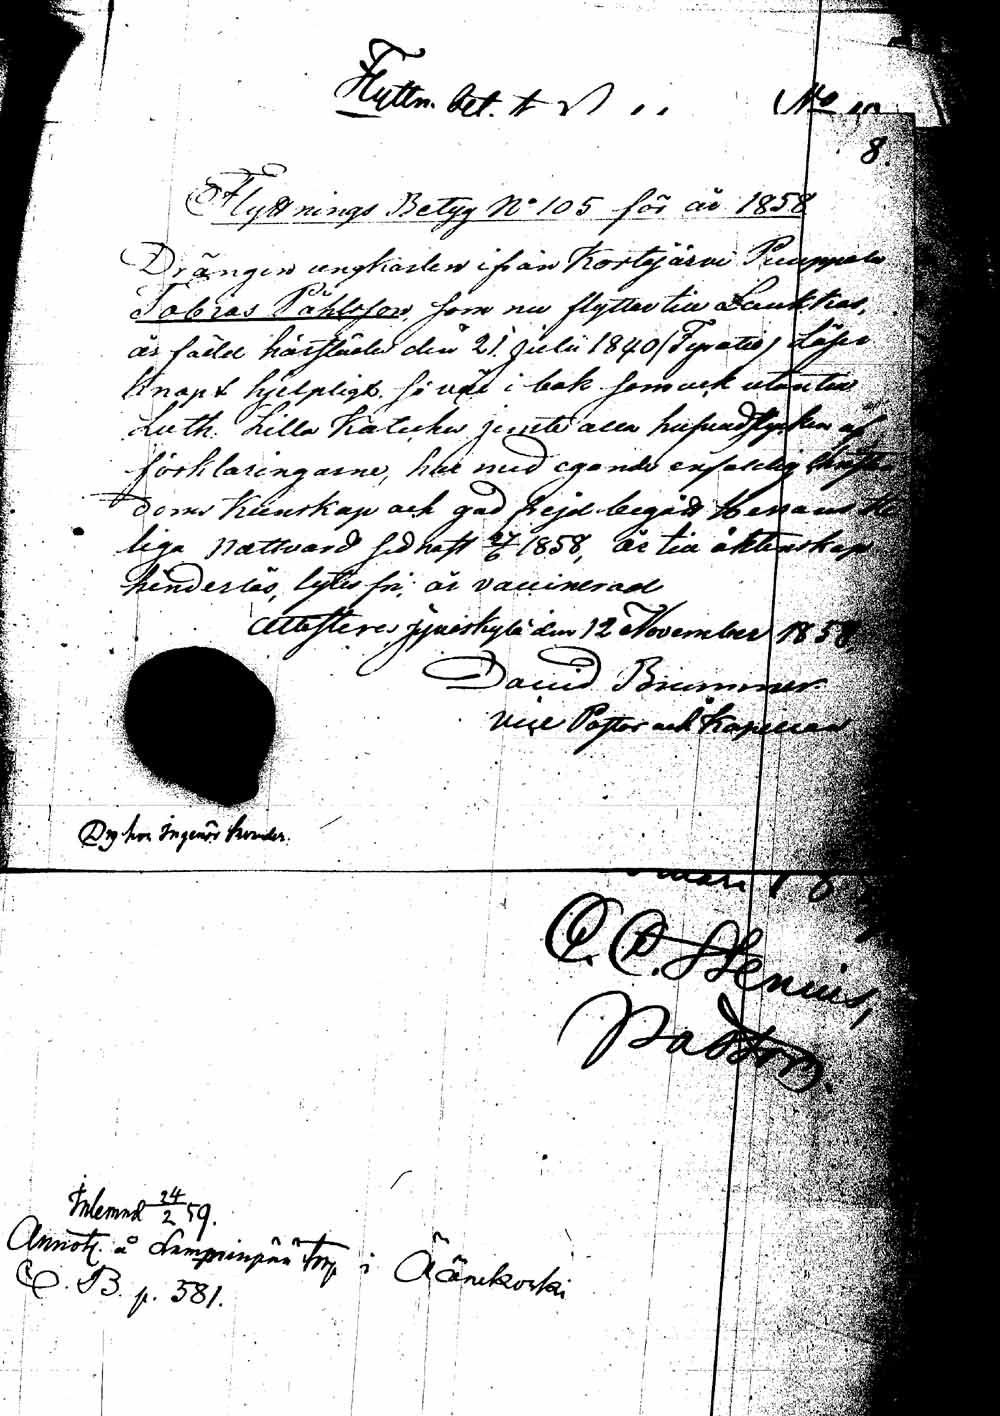 Flyttn. bet. No
8.
Flyttnings Betyg No 105 för år 1858
Drängen ungkarlen ifrån Kortejärvi Puuppola
Tobias Påhlsson, som nu flyttar till Laukkas,
är född härstädes den 21 julii 1840 (Tjugatio) Läser
knapt hjelpligt så väl i bok som ock utantill
Luth. Lilla Kateches jemte alla hufvudstycken af
förklaringarne, har med egande enfaldig Kristen
doms Kunskap och god frejd begått Herrans He
liga Nattvard sednast 27/6 1858, är till äktenskap
hinderlös, lytes fri, är vaccinerad
Attesteres Jyväskylä den 12 November 1858.
David Brummer
vice Pastor och Kapellan
Drg hos Ingenör
O. C. Stenius,
Pastor.
Inlemnd 24/2 59.
Annot. å Lamminpää Torp i Äänekoski
C. B. p. 581.